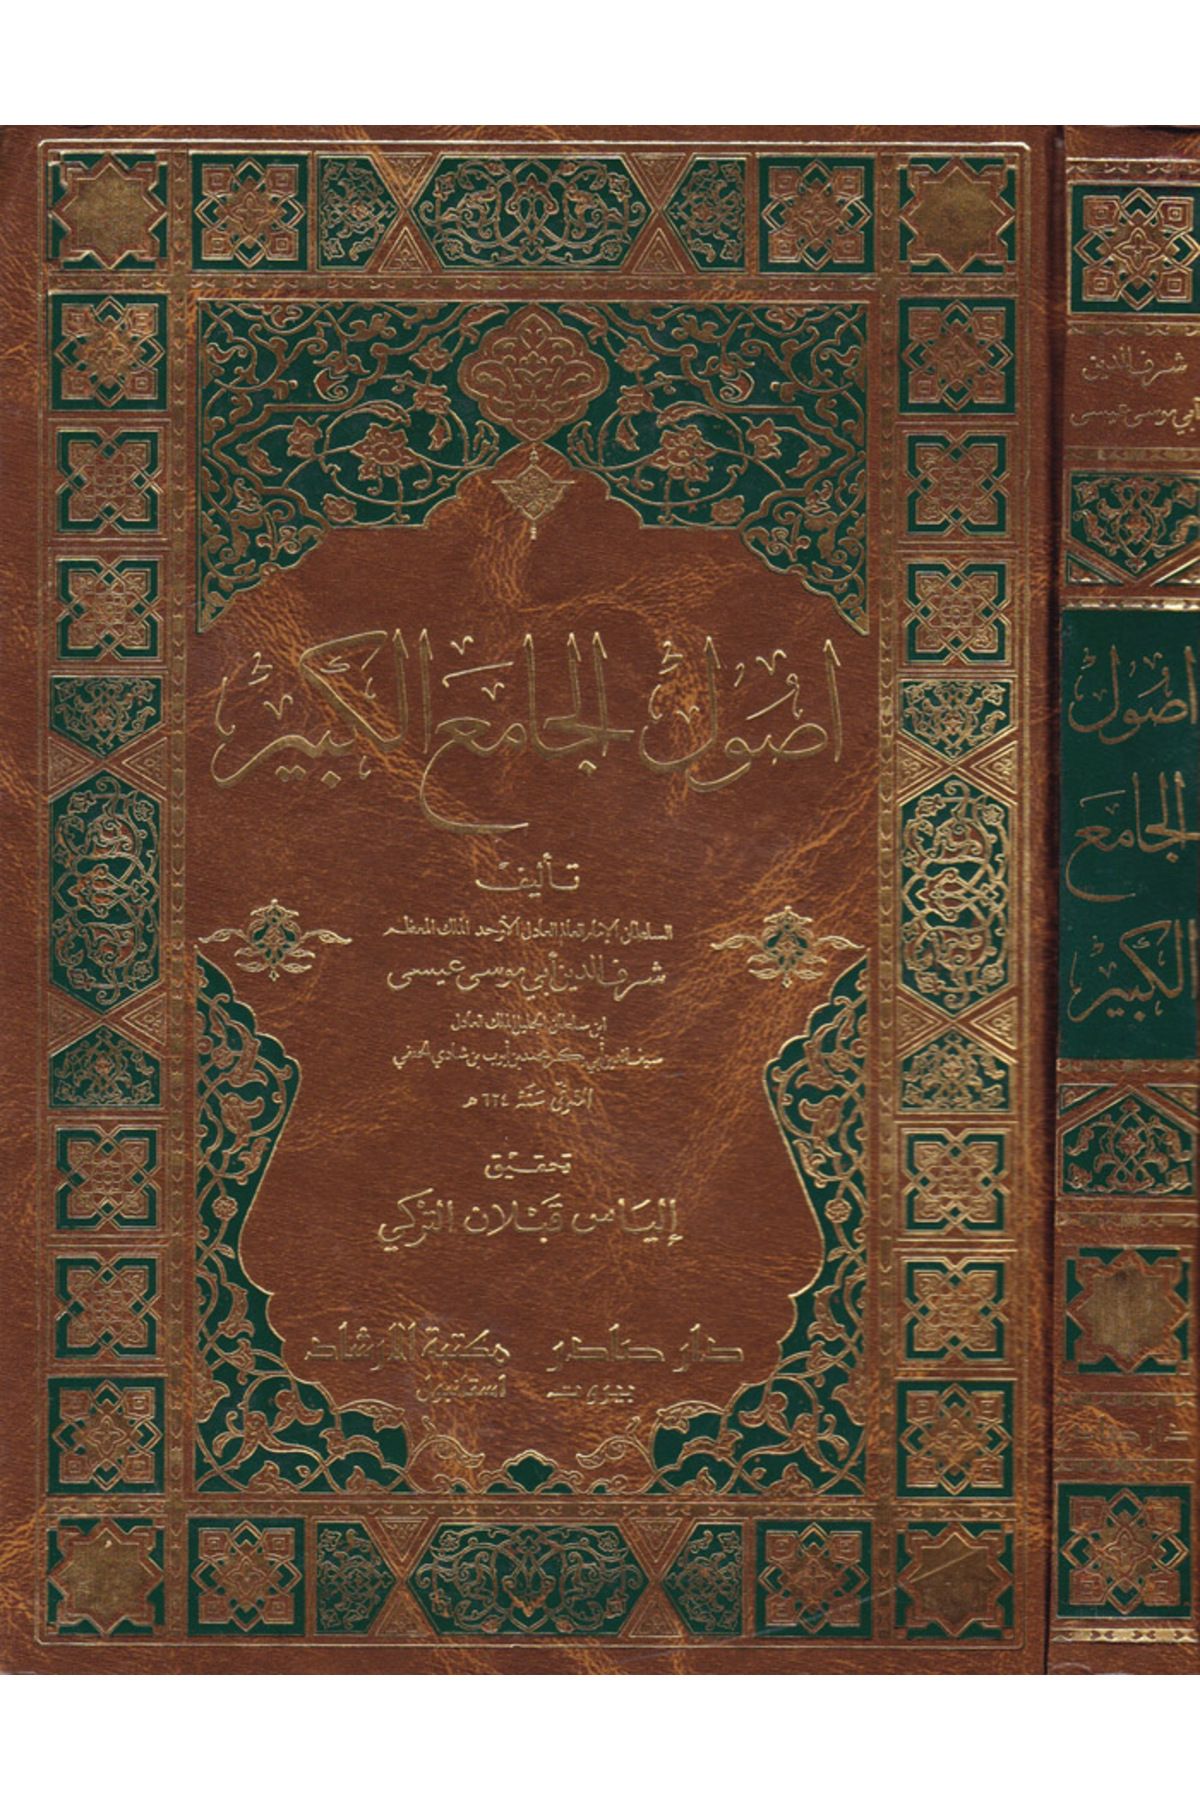 اصول الجامع الكبير
تأليف
السلطان الإمام العالم العادل الأوحد الملك المعظم
شرف الدين أبي موسى عيسى
ابن سلطان الجليل الملك العادل
سيف الدين أبي بكر محمد بن أيوب بن شادي الحنفي
المتوفى سنة ٦٢٤ هـ
تحقيق
إلياس قبلان التركي
دار صادر مكتبة الإرشاد
بيروت استانبول
شرف الدين
أبي موسى عيسى
اصول
الجامع
الكبير
دار صادر